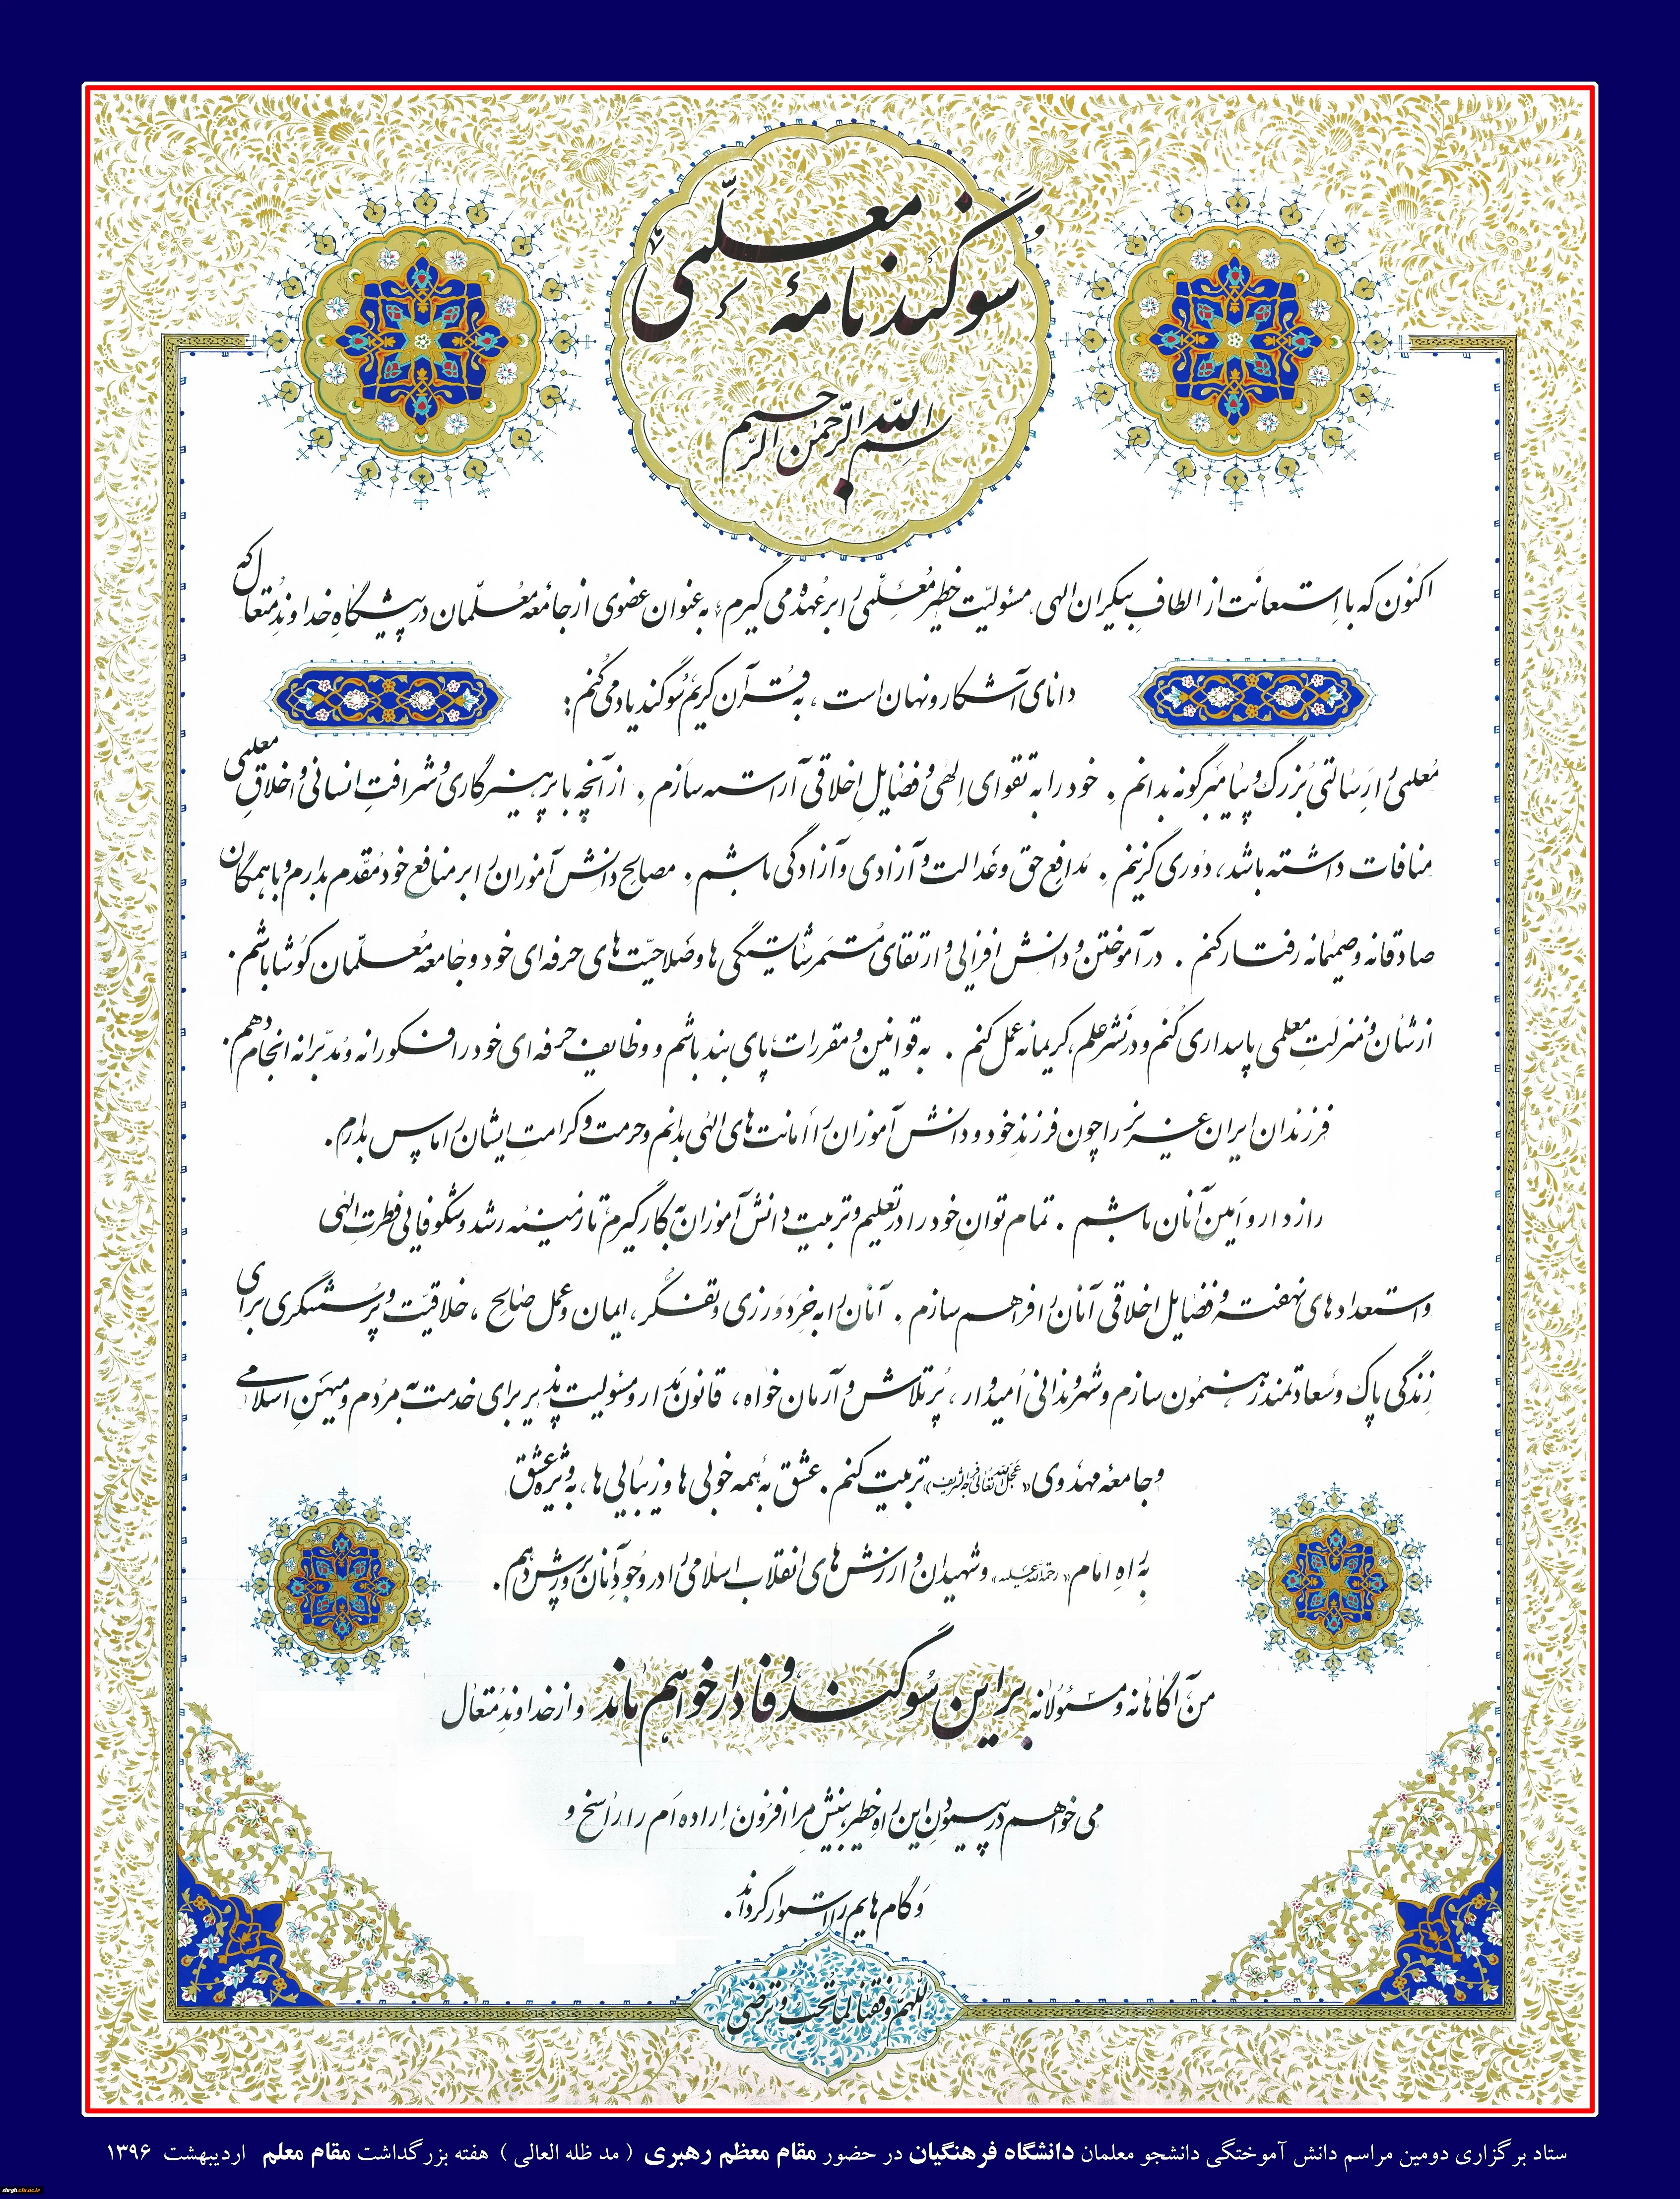 سوگندنامهٔ معلّمی
بسم الله الرحمن الرحیم
اکنون که با استعانت از الطافِ بیکران الهی، مسئولیّت خطیر مُعلّمی را بر عُهده می گیرم، به عنوان عضوی از جامعهٔ مُعلّمان در پیشگاهِ خداوندِ مُتعال که
دانای آشکار و نهان است، به قرآن کریم سُوگند یاد می کُنم:
مُعلمی را رِسالتی بُزرگ و پیامبرگونه بدانم. خود را به تقوای اِلهی و فضایل اخلاقی آراسته سازم. از آنچه با پرهیزگاری و شرافتِ انسانی و اخلاقِ معلمی
منافات داشته باشد، دُوری گزینم. مُدافِع حق و عَدالت و آزادی و آزادگی باشم. مصالح دانش آموزان را بر منافع خود مُقدّم بدارم و با همگان
صادقانه و صمیمانه رفتار کنم. در آموختن و دانش افزایی و ارتقای مُستمر شایستگی ها و صَلاحیّت های حرفه ای خود و جامعه مُعلّمان کوشا باشم.
از شأن و منزلتِ معلمی پاسداری کُنم و در نشر علم، کریمانه عمل کنم. به قوانین و مقررات، پای بند باشم و وظایف حرفه ای خود را فکورانه و مُدبّرانه انجام دهم.
فرزندان ایران عزیز را چون فرزندِ خود و دانش آموزان را اَمانت های الهی بدانم و حرمت و کرامتِ ایشان را پاس بدارم.
رازدار و اَمین آنان باشم. تمام توانِ خود را در تعلیم و تربیتِ دانش آموزان به کار گیرم تا زمینهٔ رشد و شکوفایی فطرتِ الهی
و استعدادهای نهفته و فضایل اخلاقی آنان را فراهم سازم. آنان را به خِرَدوَرزی و تفکّر، ایمان و عملِ صالح، خلاقیّت و پُرسشگری برای
زندگی پاک و سعادتمند رهنمون سازم و شهروندانی اُمیدوار، پُرتلاش و آرمان خواه، قانون مدار و مسئولیت پذیر برای خدمت به مردُم و میهنِ اسلامی
و جامعهٔ مهدوی «عجّل الله تعالی فرجه الشریف» تربیت کنم. عشق به همه خوبی ها و زیبایی ها، به ویژه عشق
به راهِ امام «رحمة الله علیه» و شهیدان و ارزش های انقلاب اسلامی را در وجودِ آنان پرورش دهم.
من، آگاهانه و مسئولانه بر این سُوگند وفادار خواهم ماند و از خداوندِ مُتعال
می خواهم در پیمودنِ این راهِ خطیر، بینشِ مرا افزون، اِراده اَم را راسخ و
و گام هایم را استوار گرداند.
اللهمّ وفقنا لما تحب و ترضی
ستاد برگزاری دومین مراسم دانش آموختگی دانشجو معلمان دانشگاه فرهنگیان در حضور مقام معظم رهبری ( مد ظله العالی ) هفته بزرگداشت مقام معلم اردیبهشت ۱۳۹۶